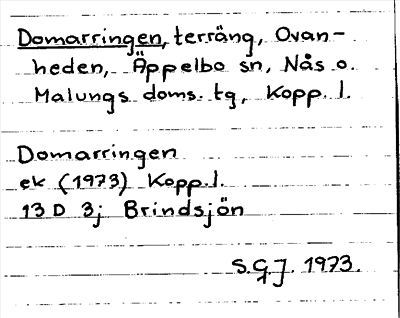 Domarringen, terräng, Ovan-
heden, Äppelbo sn, Nås o.
Malungs doms. tg, Kopp. l.
Domarringen
ek (1973) Kopp. l.
13 D 3j Brindsjön
S.G.J. 1973.